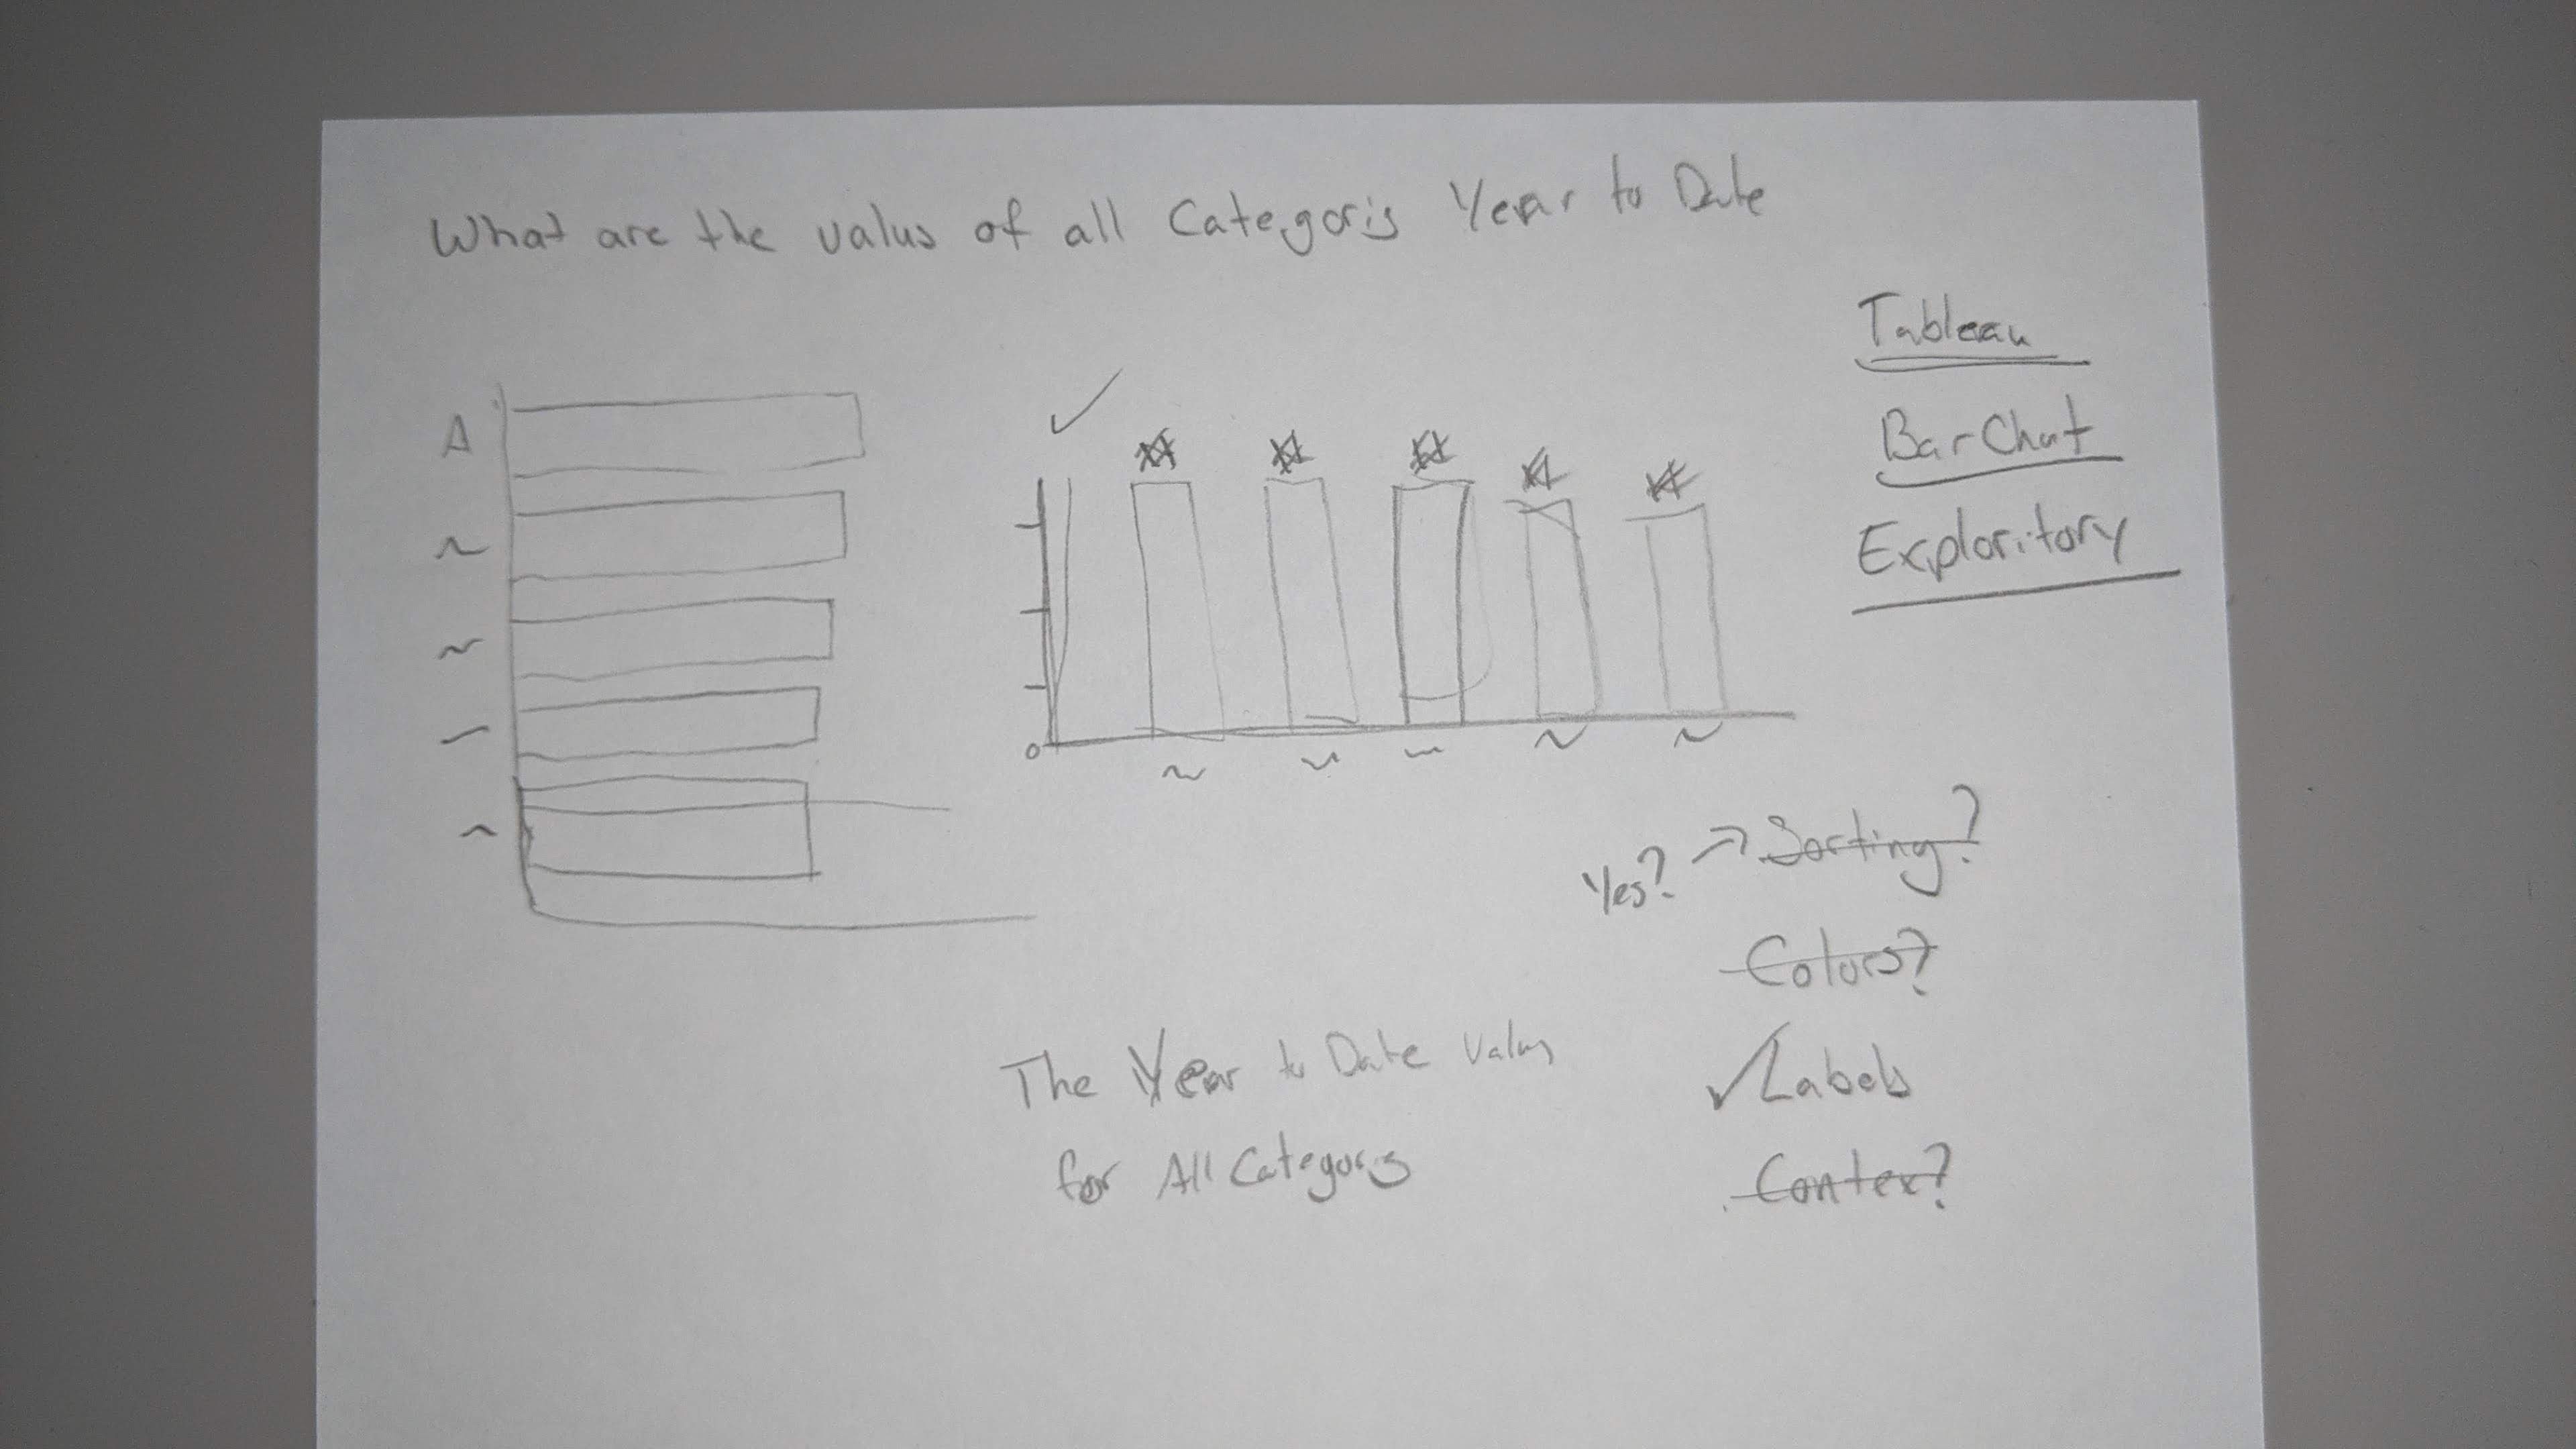 What are the valus of all Categoris Year to Date
Tableau
Bar Chart
Exploritory
A
0
Yes? → Sorting?
Colors?
✓ Labels
Contex?
The Year to Date Valus
for All Categoris